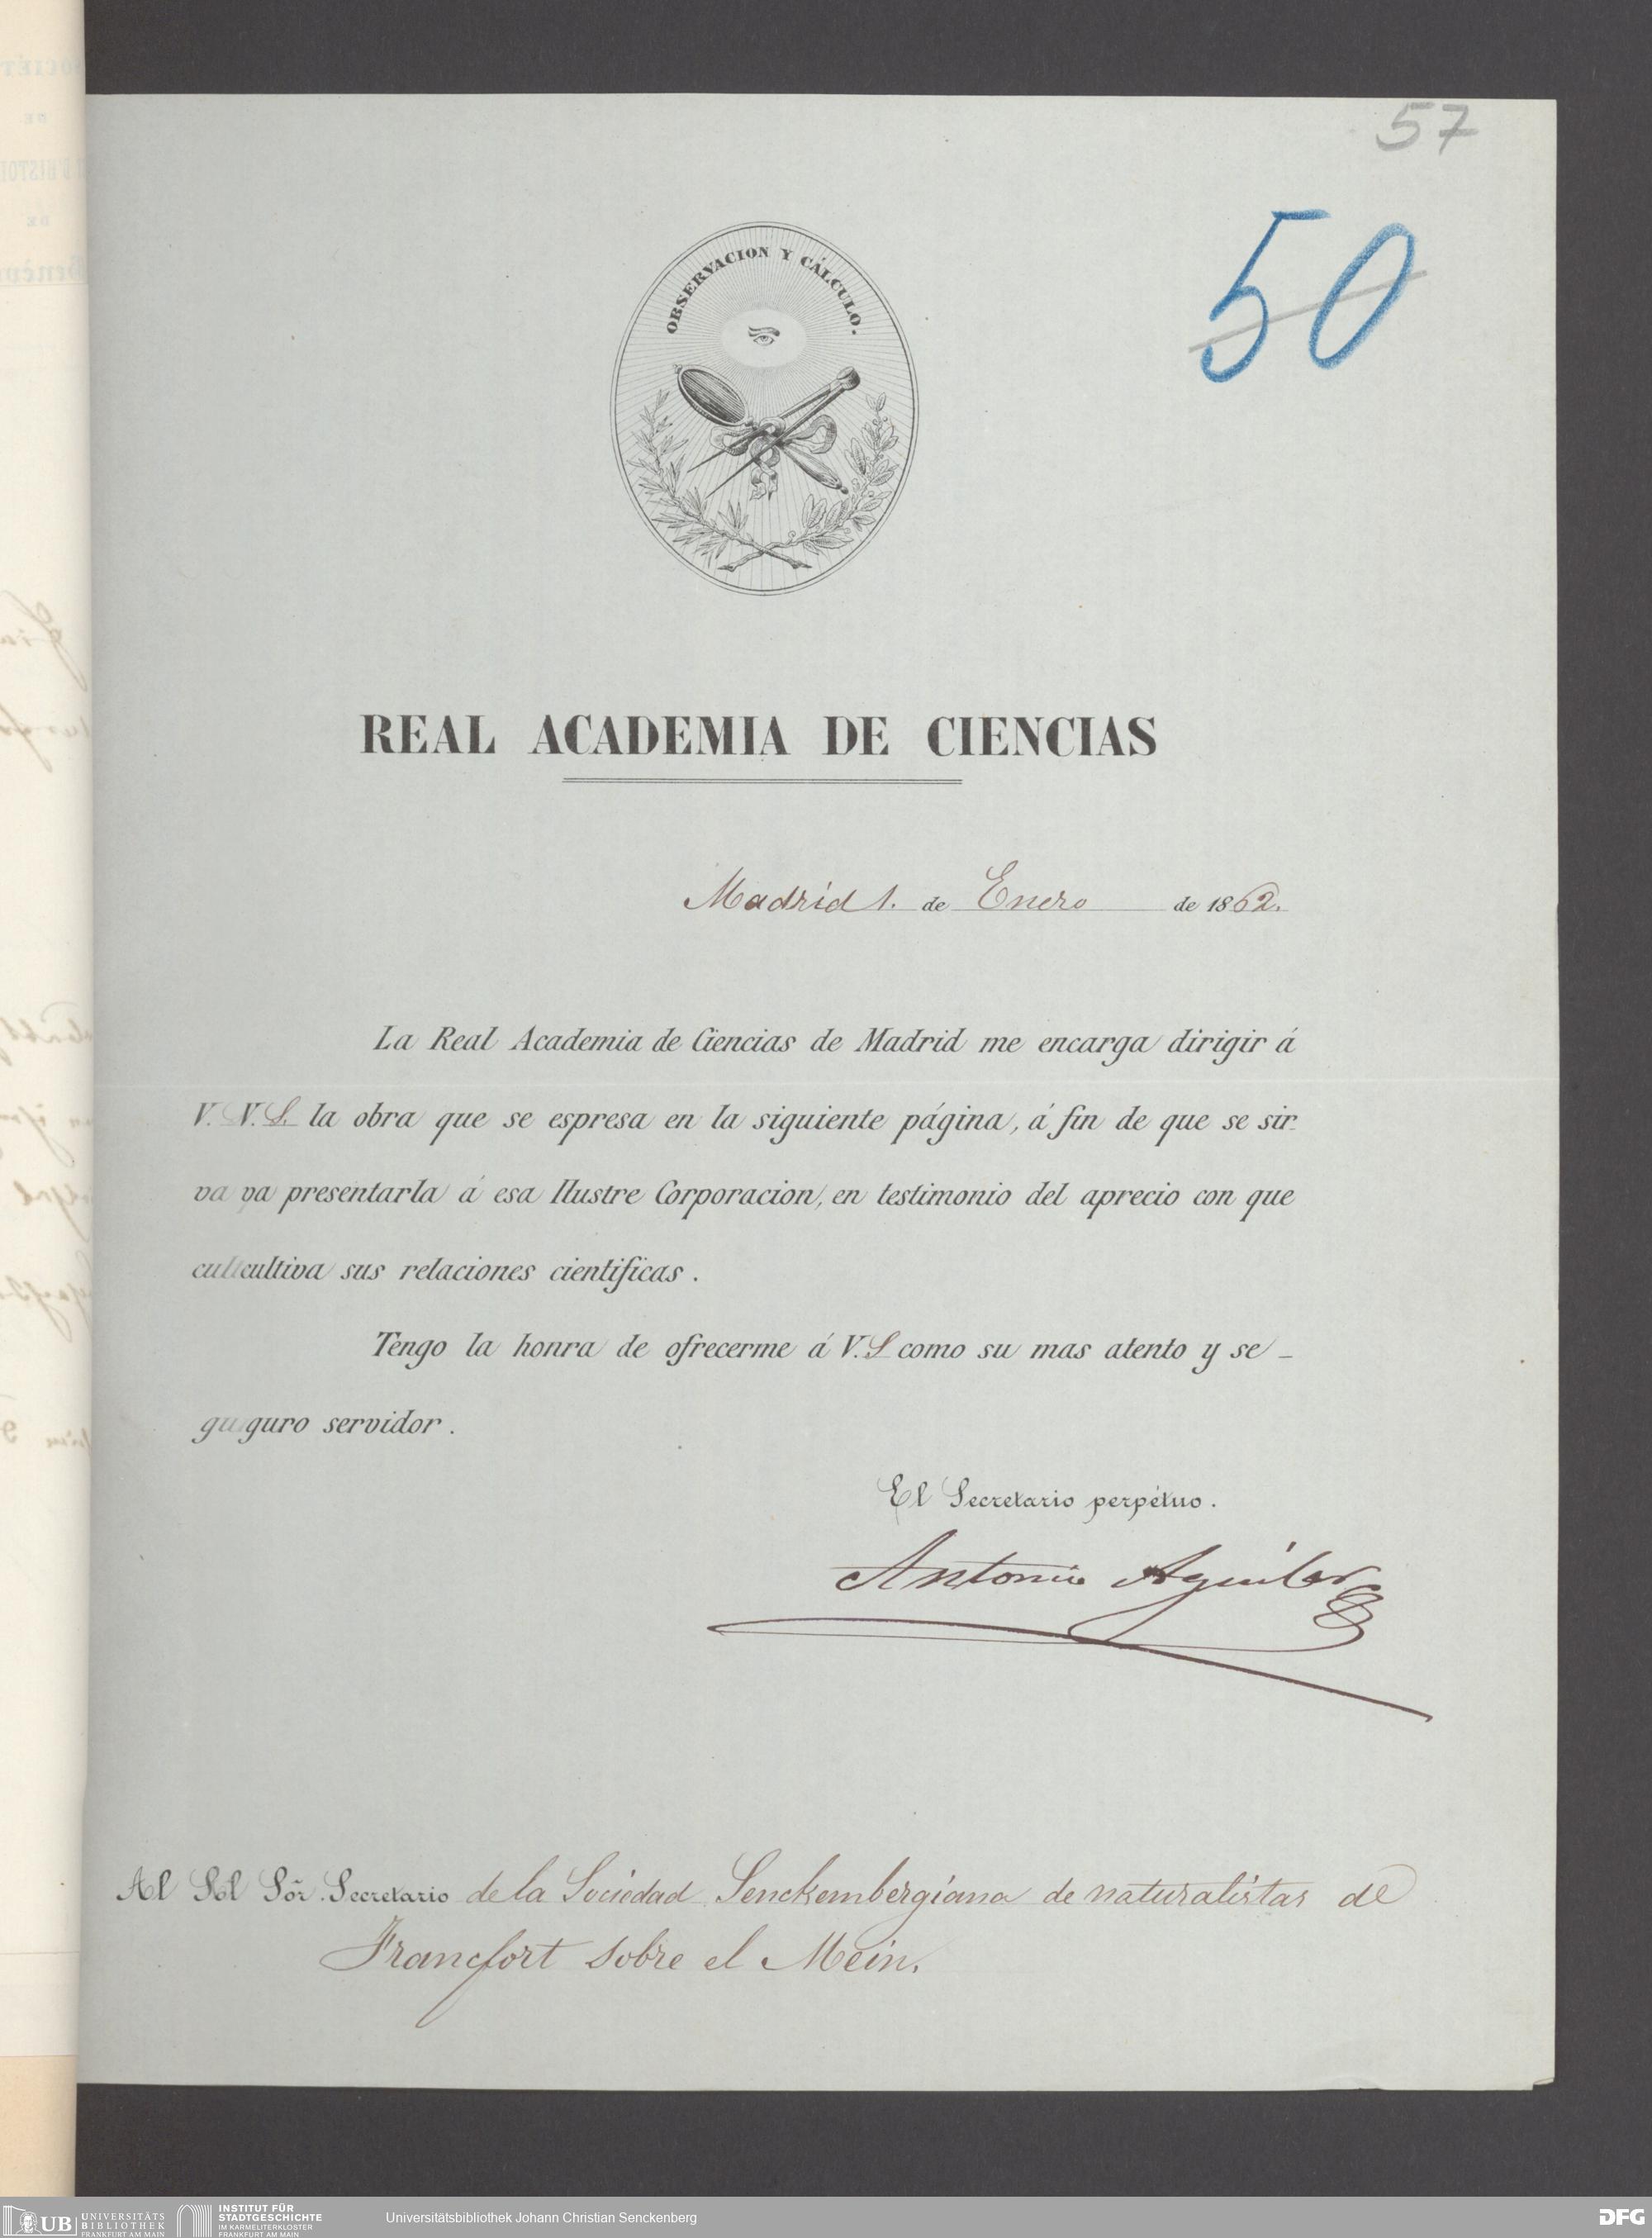 57
50
OBSERVACION Y CÁLCULO.
REAL ACADEMIA DE CIENCIAS
Madrid 1. de Enero de 1862.
La Real Academia de Ciencias de Madrid me encarga dirigir á
V. V. S. la obra que se espresa en la siguiente página, á fin de que se sir-
va va presentarla á esa Ilustre Corporacion, en testimonio del aprecio con que
cultcultiva sus relaciones cientificas.
Tengo la honra de ofrecerme á V. S. como su mas atento y se-
guguro servidor.
El Secretario perpétuo.
Antonio Aguilar
Al Sor. Secretario de la Sociedad Senckembergiana de naturalistas de
Francfort sobre el Mein.
UB UNIVERSITÄTS
BIBLIOTHEK
FRANKFURT AM MAIN
INSTITUT FÜR
STADTGESCHICHTE
IM KARMELITERKLOSTER
FRANKFURT AM MAIN
Universitätsbibliothek Johann Christian Senckenberg
DFG